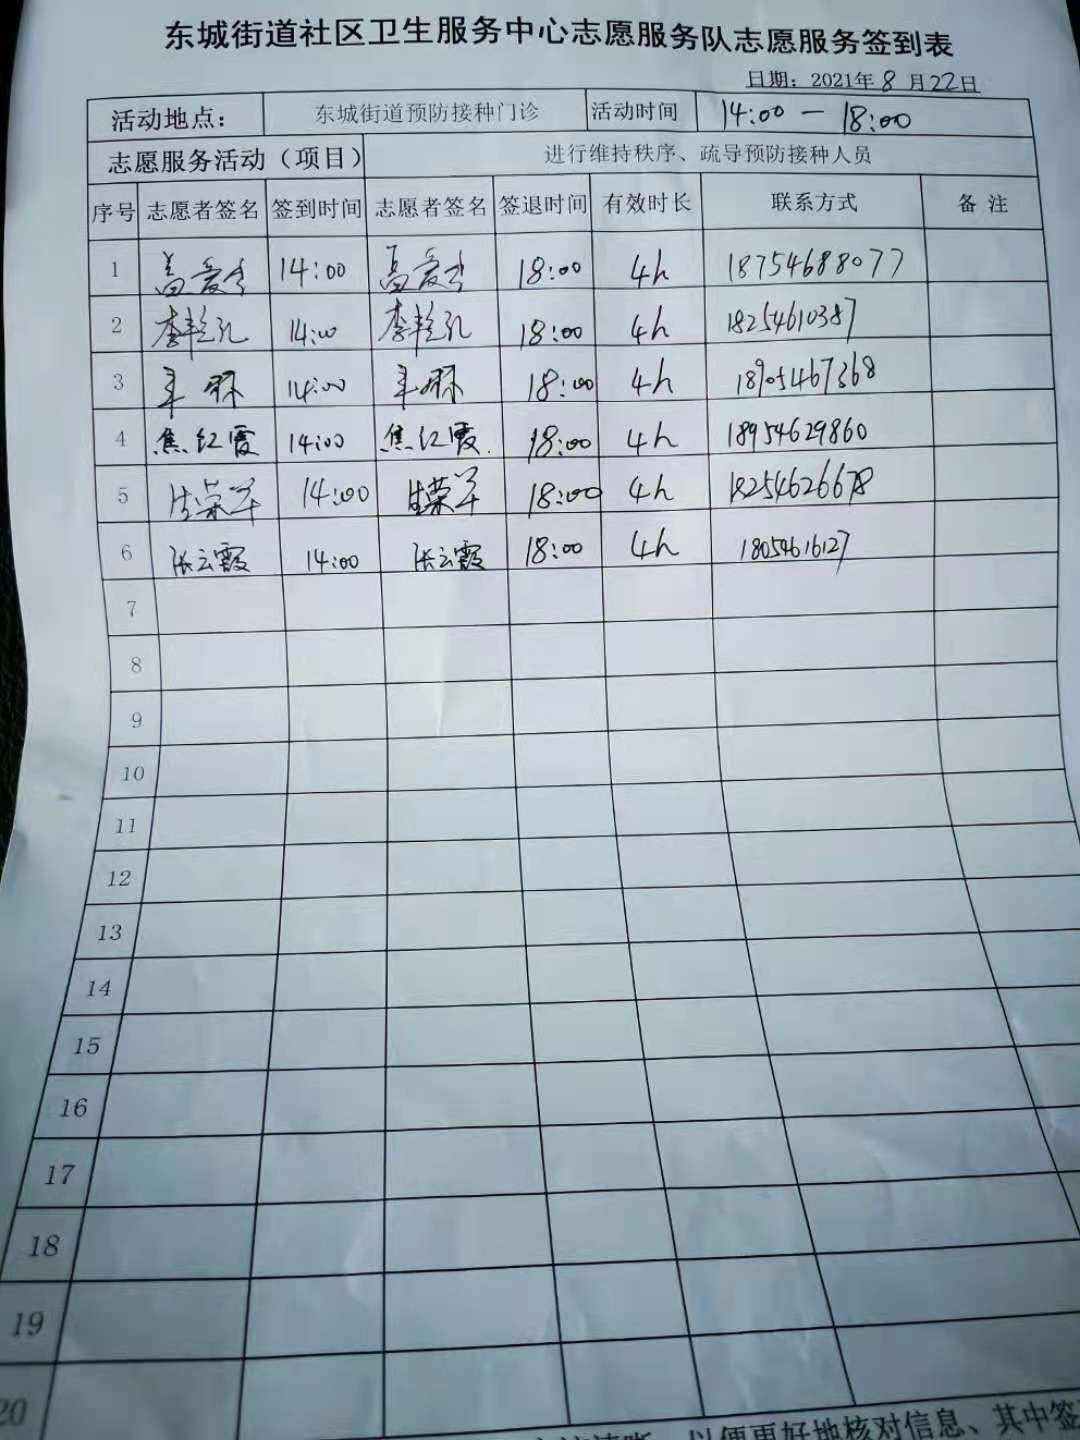 东城街道社区卫生服务中心志愿服务队志愿服务签到表
日期：2021年8月22日
活动地点： 东城街道预防接种门诊 活动时间 14:00 — 18:00
志愿服务活动（项目） 进行维持秩序、疏导预防接种人员
序号 志愿者签名 签到时间 志愿者签名 签退时间 有效时长 联系方式 备 注
1 14:00 18:00 4h 18754688077
2 李艳孔 14:00 李艳孔 18:00 4h 18254610387
3 14:00 18:00 4h 18905467368
4 焦红霞 14:00 焦红霞 18:00 4h 18954629860
5 14:00 18:00 4h 18254626678
6 张云霞 14:00 张云霞 18:00 4h 18054616127
7
8
9
10
11
12
13
14
15
16
17
18
19
20
以便更好地核对信息、其中签